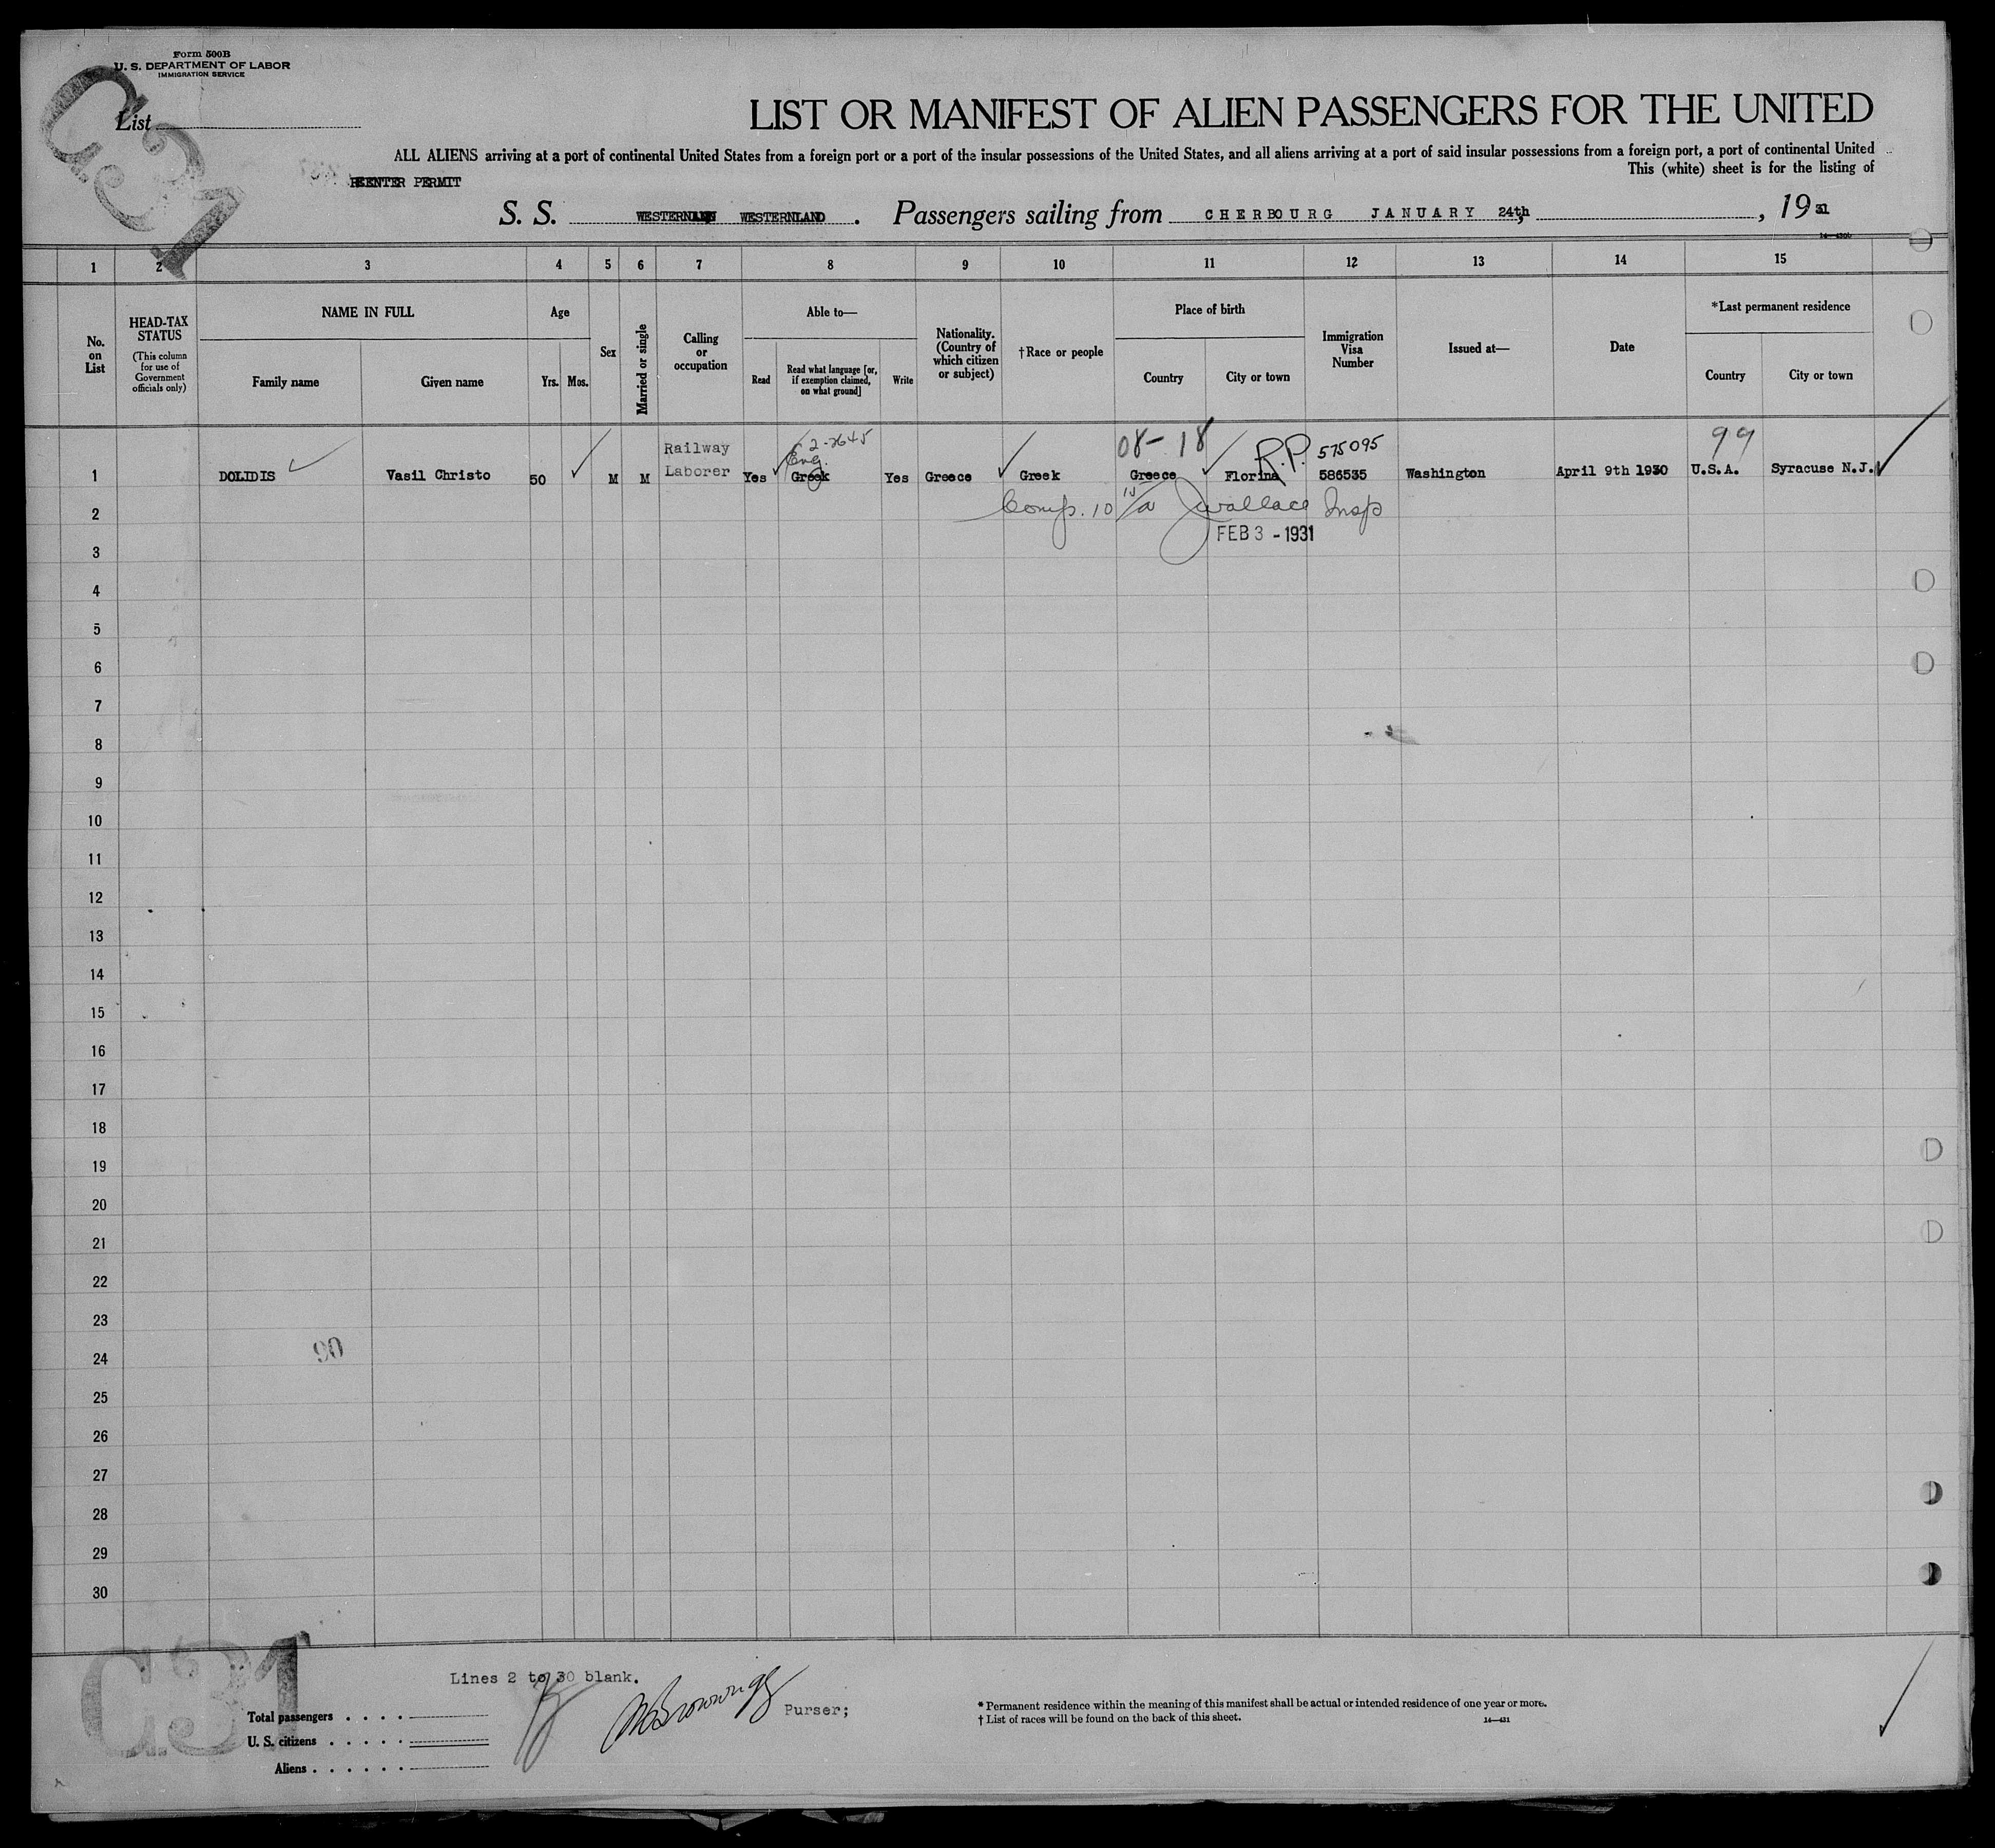 Form 500B
U. S. DEPARTMENT OF LABOR
IMMIGRATION SERVICE
G31
List
LIST OR MANIFEST OF ALIEN PASSENGERS FOR THE UNITED
ALL ALIENS arriving at a port of continental United States from a foreign port or a port of the insular possessions of the United States, and all aliens arriving at a port of said insular possessions from a foreign port, a port of continental United
This (white) sheet is for the listing of
REENTER PERMIT
S. S. WESTERNLAND . Passengers sailing from CHERBOURG JANUARY 24th, , 19 31
1 2 3 4 5 6 7 8 9 10 11 12 13 14 15
No. on List
HEAD-TAX STATUS
(This column for use of Government officials only)
NAME IN FULL
Family name Given name
Age
Yrs. Mos.
Sex
Married or single
Calling or occupation
Able to—
Read
Read what language [or, if exemption claimed, on what ground]
Write
Nationality. (Country of which citizen or subject)
†Race or people
Place of birth
Country City or town
Immigration Visa Number
Issued at—
Date
*Last permanent residence
Country City or town
2-2645
08- 18 R.P. 575095 99
1 DOLIDIS Vasil Christo 50 M M Railway Laborer Yes Eng. Greek Yes Greece Greek Greece Florina 586535 Washington April 9th 1930 U.S.A. Syracuse N.J.
2 Comp. 10 Wallace Insp
3 FEB 3 - 1931
4
5
6
7
8
9
10
11
12
13
14
15
16
17
18
19
20
21
22
23
24
90
25
26
27
28
29
30
G31
Lines 2 to 30 blank.
Purser;
Total passengers . . . .
U. S. citizens . . . . .
Aliens . . . . . .
* Permanent residence within the meaning of this manifest shall be actual or intended residence of one year or more.
† List of races will be found on the back of this sheet.
14—431